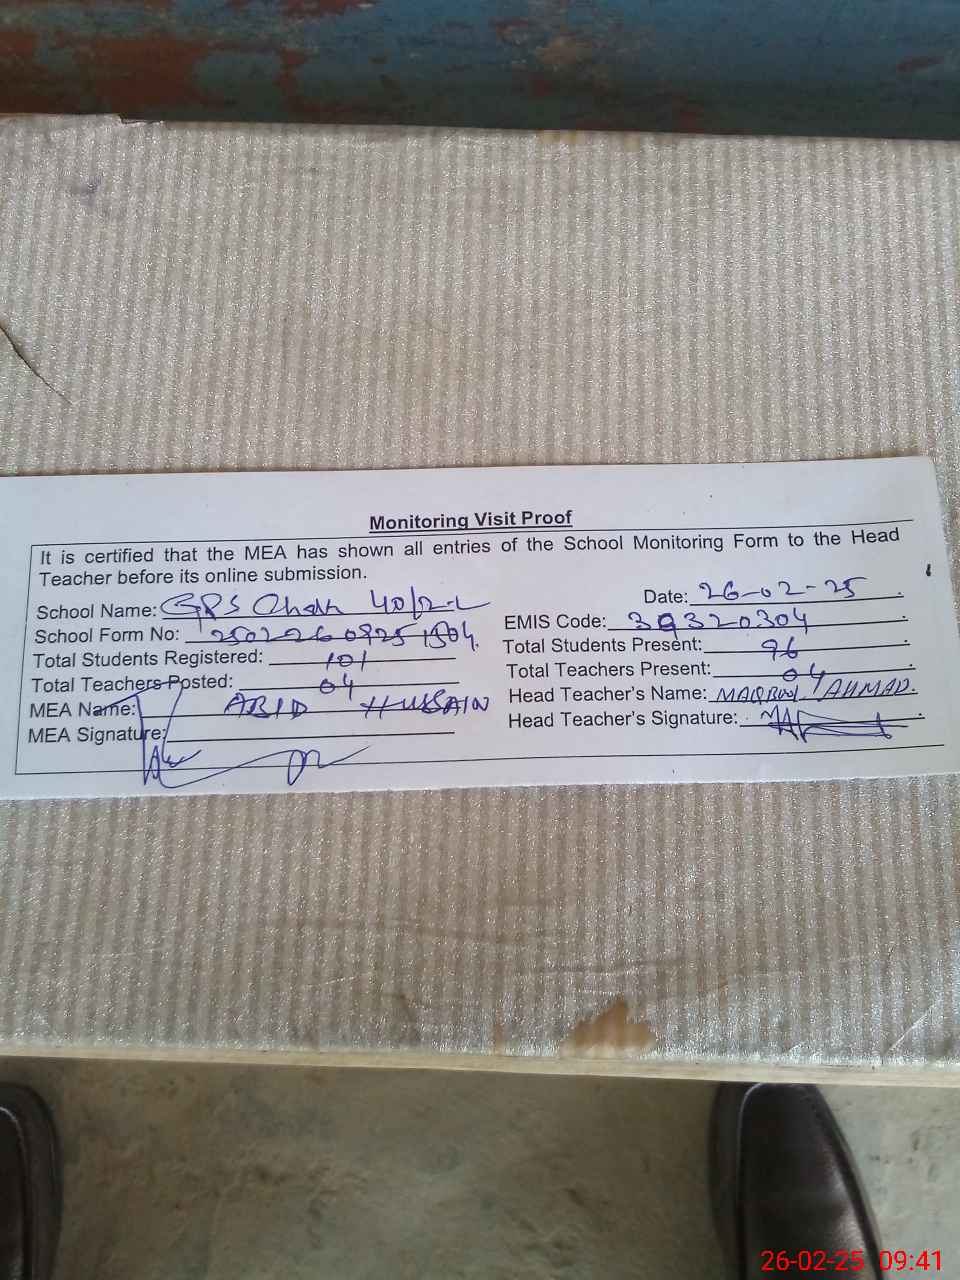 Monitoring Visit Proof
It is certified that the MEA has shown all entries of the School Monitoring Form to the Head
Teacher before its online submission.
School Name: GPS Chak 40/2-L
Date: 26-02-25
School Form No:
EMIS Code: 39320304
Total Students Registered: 101
Total Students Present: 96
Total Teachers Posted: 04
Total Teachers Present: 04
MEA Name: ABID HUSSAIN
Head Teacher's Name: MAQBOOL AHMAD.
MEA Signature:
Head Teacher's Signature:
26-02-25 09:41